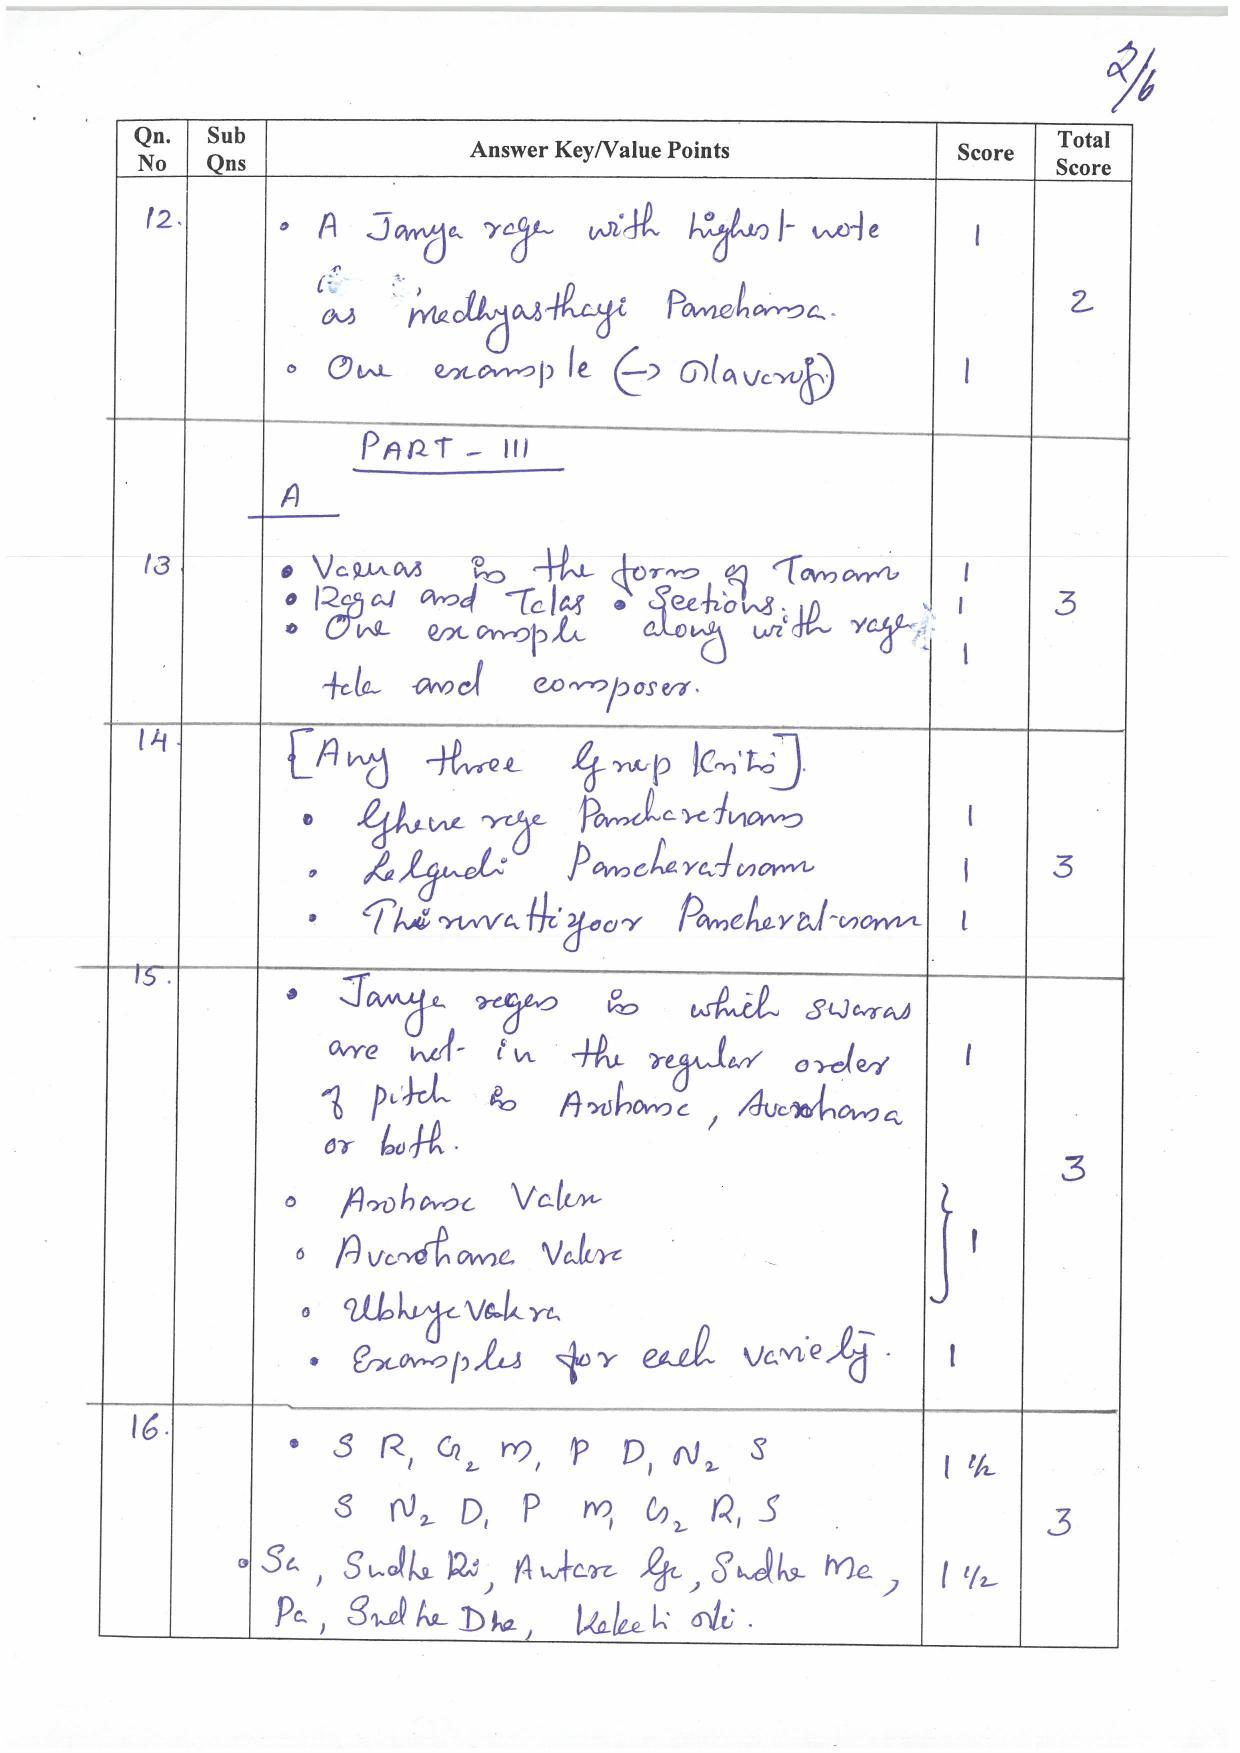 2/6
Qn. No Sub Qns Answer Key/Value Points Score Total Score
12. • A Janya raga with highest note 1
as madhyasthayi Panchama. 2
• One example (→ Navaroj) 1
PART - III
A
13 • Varnas in the form of Tanam 1
• Ragas and Talas • Sections. 1 3
• One example along with raga 1
tala and composer.
14 [Any three Group Kritis].
• Ghana raga Pancharatnam 1
• Lalgudi Pancharatnam 1 3
• Thiruvattiyoor Pancharatnam 1
15. • Janya ragas in which swaras
are not in the regular order 1
of pitch in Arohana, Avarohana
or both. 3
• Arohana Vakra
• Avarohana Vakra 1
• Ubhaya Vakra
• Examples for each variety. 1
16. • S R₁ G₂ M₁ P D₁ N₂ S 1 1/2
S N₂ D₁ P M₁ G₂ R₁ S 3
• Sa, Sudha Ri, Antara Ga, Sudha Ma, 1 1/2
Pa, Sudha Dha, Kakali Ni.